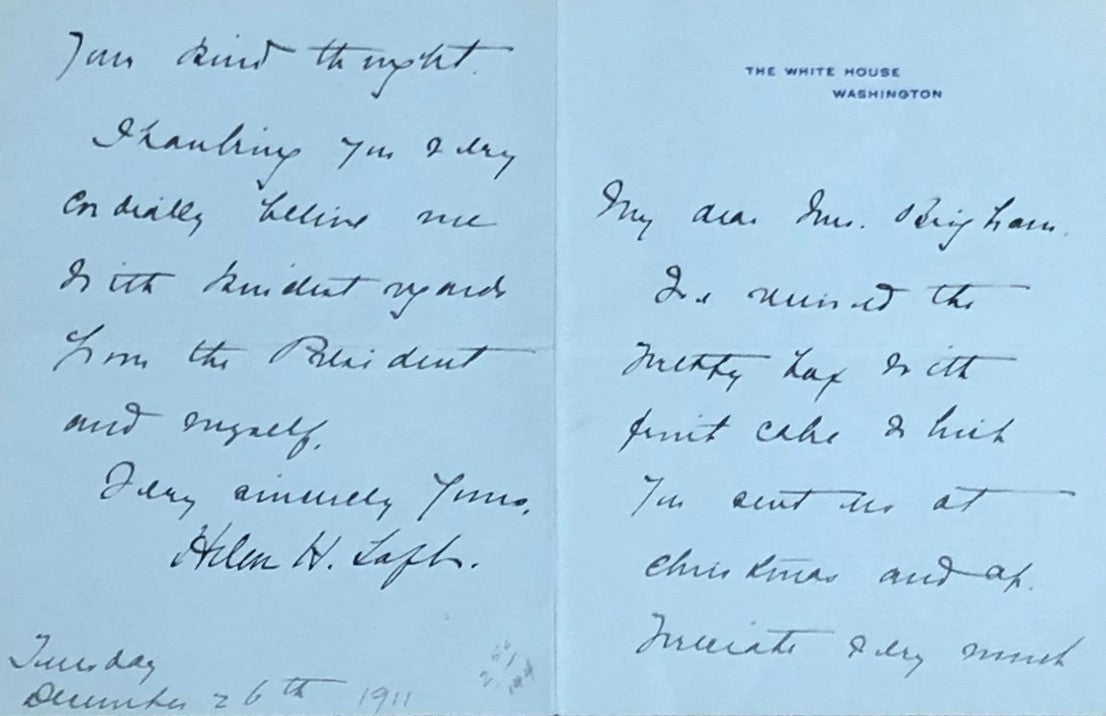 THE WHITE HOUSE
WASHINGTON
My dear Mrs. Brigham.
We received the
pretty box with
fruit cake which
you sent us at
Christmas and ap-
preciate very much
your kind thought.
Thanking you very
cordially believe me
with kindest regards
from the President
and myself,
Very sincerely yours,
Helen H. Taft.
Tuesday
December 26th 1911